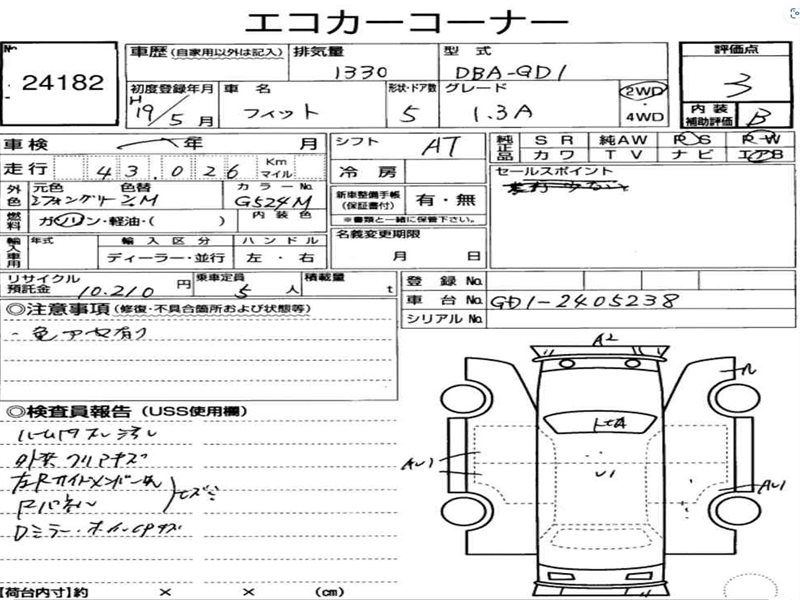 エコカーコーナー
No. 24182
車歴 (自家用以外は記入) 排気量 1330 型式 DBA-GD1
評価点 3
初度登録年月 H19/5月 車名 フィット 形状・ドア数 5 グレード 1.3A 2WD・4WD
内装補助評価 B
車検 年 月 シフト AT
純正品 SR 純AW PS PW
カワ TV ナビ エアB
走行 43,026 Km マイル 冷房
セールスポイント
外色 元色 色替 カラーNo. G524M 内装色
新車整備手帳(保証書付) 有・無
※書類と一緒に保管下さい。
燃料 ガソリン・軽油・( )
名義変更期限 月 日
輸入車用 年式 輸入区分 ディーラー・並行 ハンドル 左・右
リサイクル預託金 10.210円 乗車定員 5人 積載量 t
登録No.
車台No. GD1-2405238
シリアルNo.
◎注意事項(修復・不具合箇所および状態等)
A2
◎検査員報告(USS使用欄)
AU1
U1
AU1
【荷台内寸】約 × × (cm)